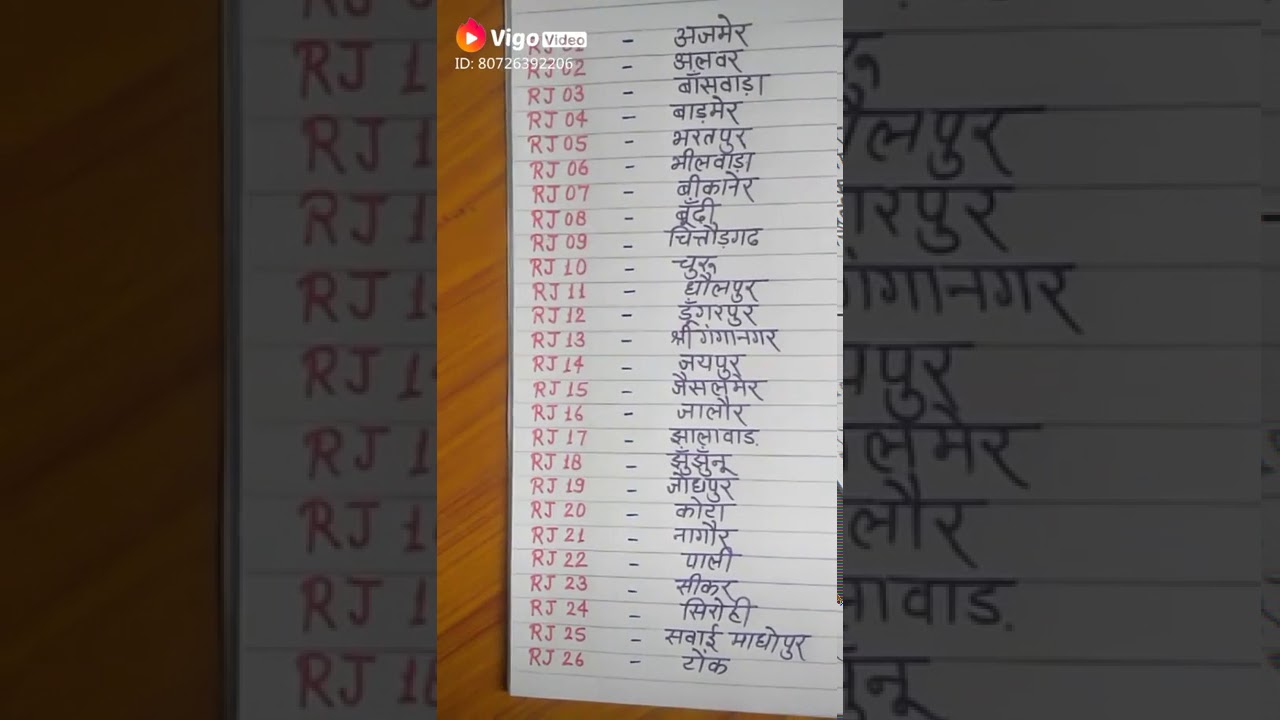 Vigo Video
ID: 80726392206
RJ 01 - अजमेर
RJ 02 - अलवर
RJ 03 - बाँसवाड़ा
RJ 04 - बाड़मेर
RJ 05 - भरतपुर
RJ 06 - भीलवाड़ा
RJ 07 - बीकानेर
RJ 08 - बूँदी
RJ 09 - चित्तौड़गढ
RJ 10 - चुरू
RJ 11 - धौलपुर
RJ 12 - डूँगरपुर
RJ 13 - श्री गंगानगर
RJ 14 - जयपुर
RJ 15 - जैसलमेर
RJ 16 - जालौर
RJ 17 - झालावाड.
RJ 18 - झुँझुँनू
RJ 19 - जोधपुर
RJ 20 - कोटा
RJ 21 - नागौर
RJ 22 - पाली
RJ 23 - सीकर
RJ 24 - सिरोही
RJ 25 - सवाई माधोपुर
RJ 26 - टोंक